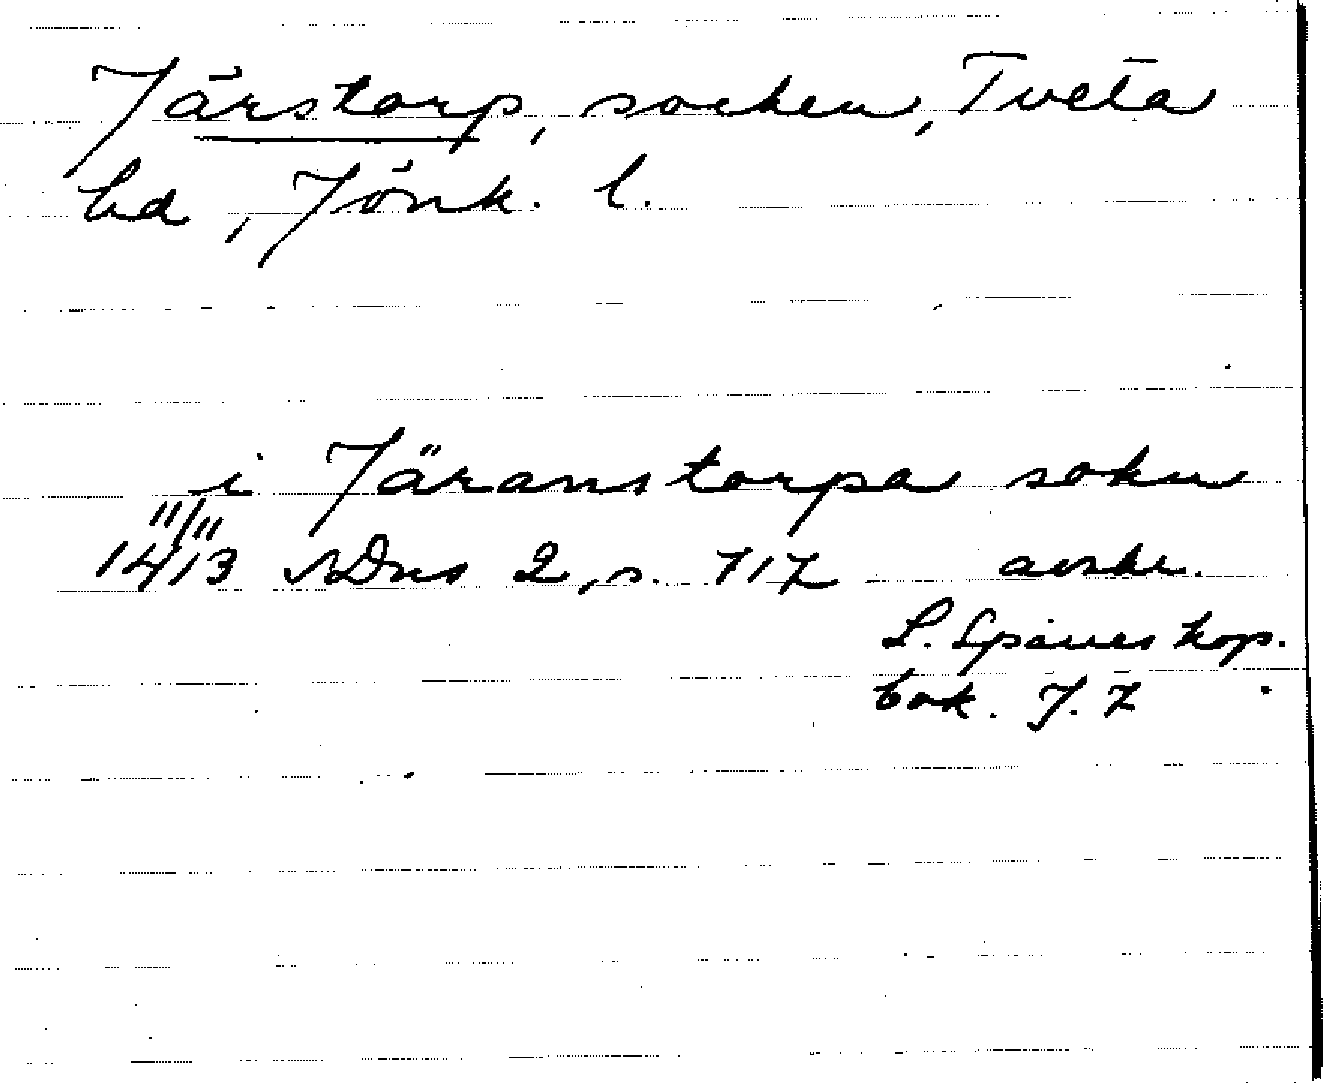 Järstorp, socken, Tveta
hd, Jönk. l.
i Järanstorpa sokn
11/11
1413 SDns 2, s. 717 avskr.
L. Sparres kop.
bok. f. 7